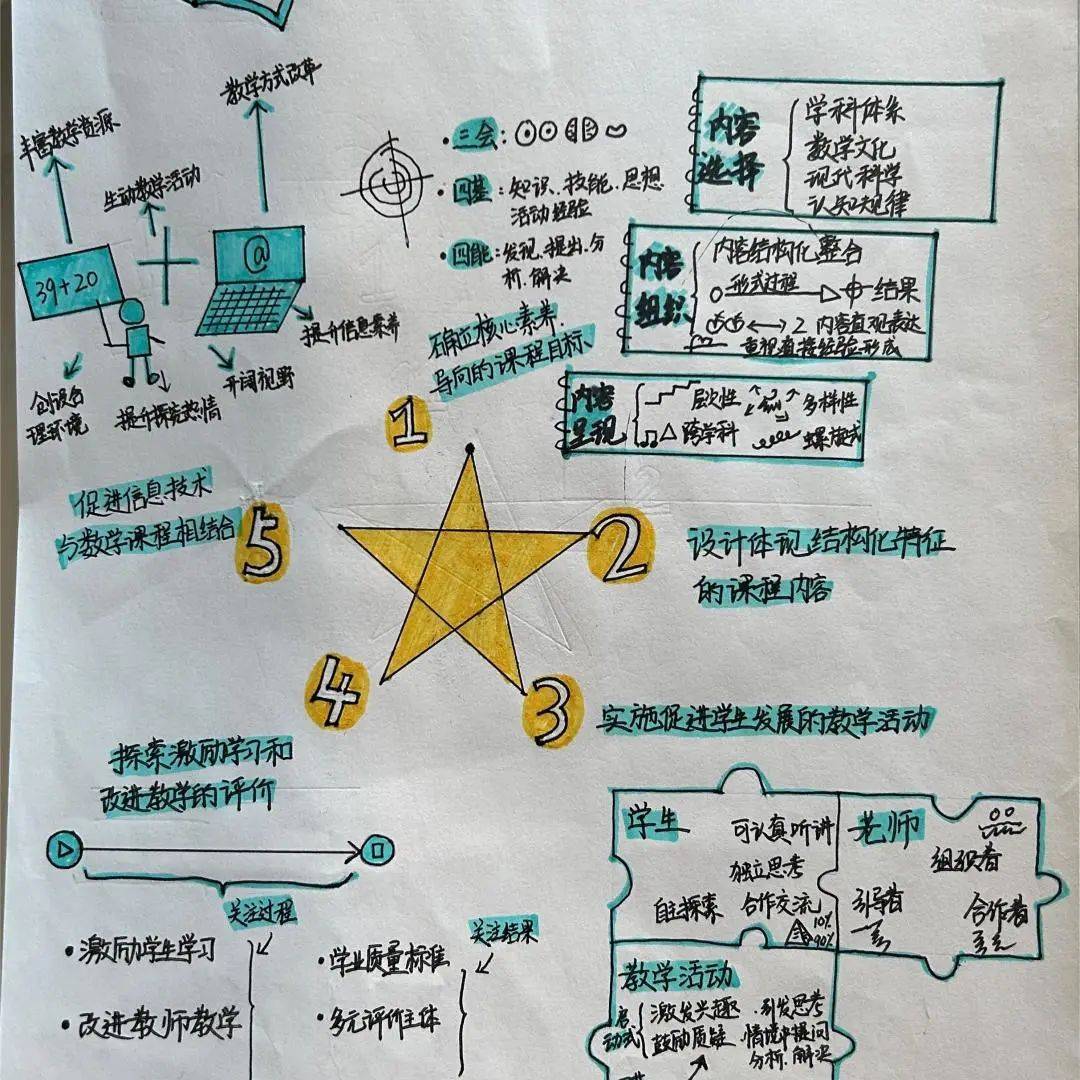 教学方式改革
丰富教学资源
生动教学活动
39+20
@
提升信息素养
开阔视野
提升探究热情
创设合
理环境
三会:
四基:知识、技能、思想
活动经验
四能:发现、提出、分
析、解决
确立核心素养
导向的课程目标、
1
内容
选择
学科体系
数学文化
现代科学
认知规律
内容
组织
内容结构化整合
形式过程
结果
2 内容直观表达
重视直接经验形成
内容
呈现
层次性
多样性
跨学科
螺旋式
促进信息技术
与数学课程相结合
5
2
设计体现结构化特征
的课程内容
4
3
实施促进学生发展的教学活动
探索激励学习和
改进教学的评价
关注过程
激励学生学习
改进教师教学
关注结果
学业质量标准
多元评价主体
学生
可认真听讲
独立思考
自主探索
合作交流
10%
90%
老师
组织者
引导者
合作者
教学活动
启
动式
激发兴趣
引发思考
鼓励质疑
情境中提问
分析、解决